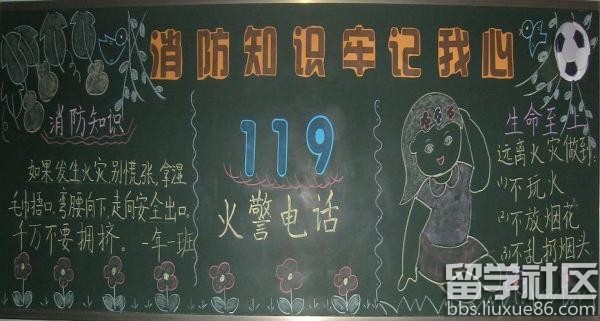 消防知识牢记我心
消防知识
如果发生火灾,别慌张,拿湿
毛巾捂口,弯腰向下,走向安全出口。
千万不要拥挤。一年一班
119
火警电话
生命至上
远离火灾做到:
(1)不玩火
(2)不放烟花
(3)不乱扔烟头
留学社区
bbs.liuxue86.com